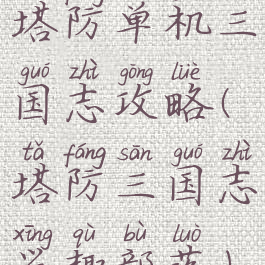 塔防单机三
guó zhì gōng lüè
国志攻略(
tǎ fáng sān guó zhì
塔防三国志
xìng qù bù luò
兴趣部落)